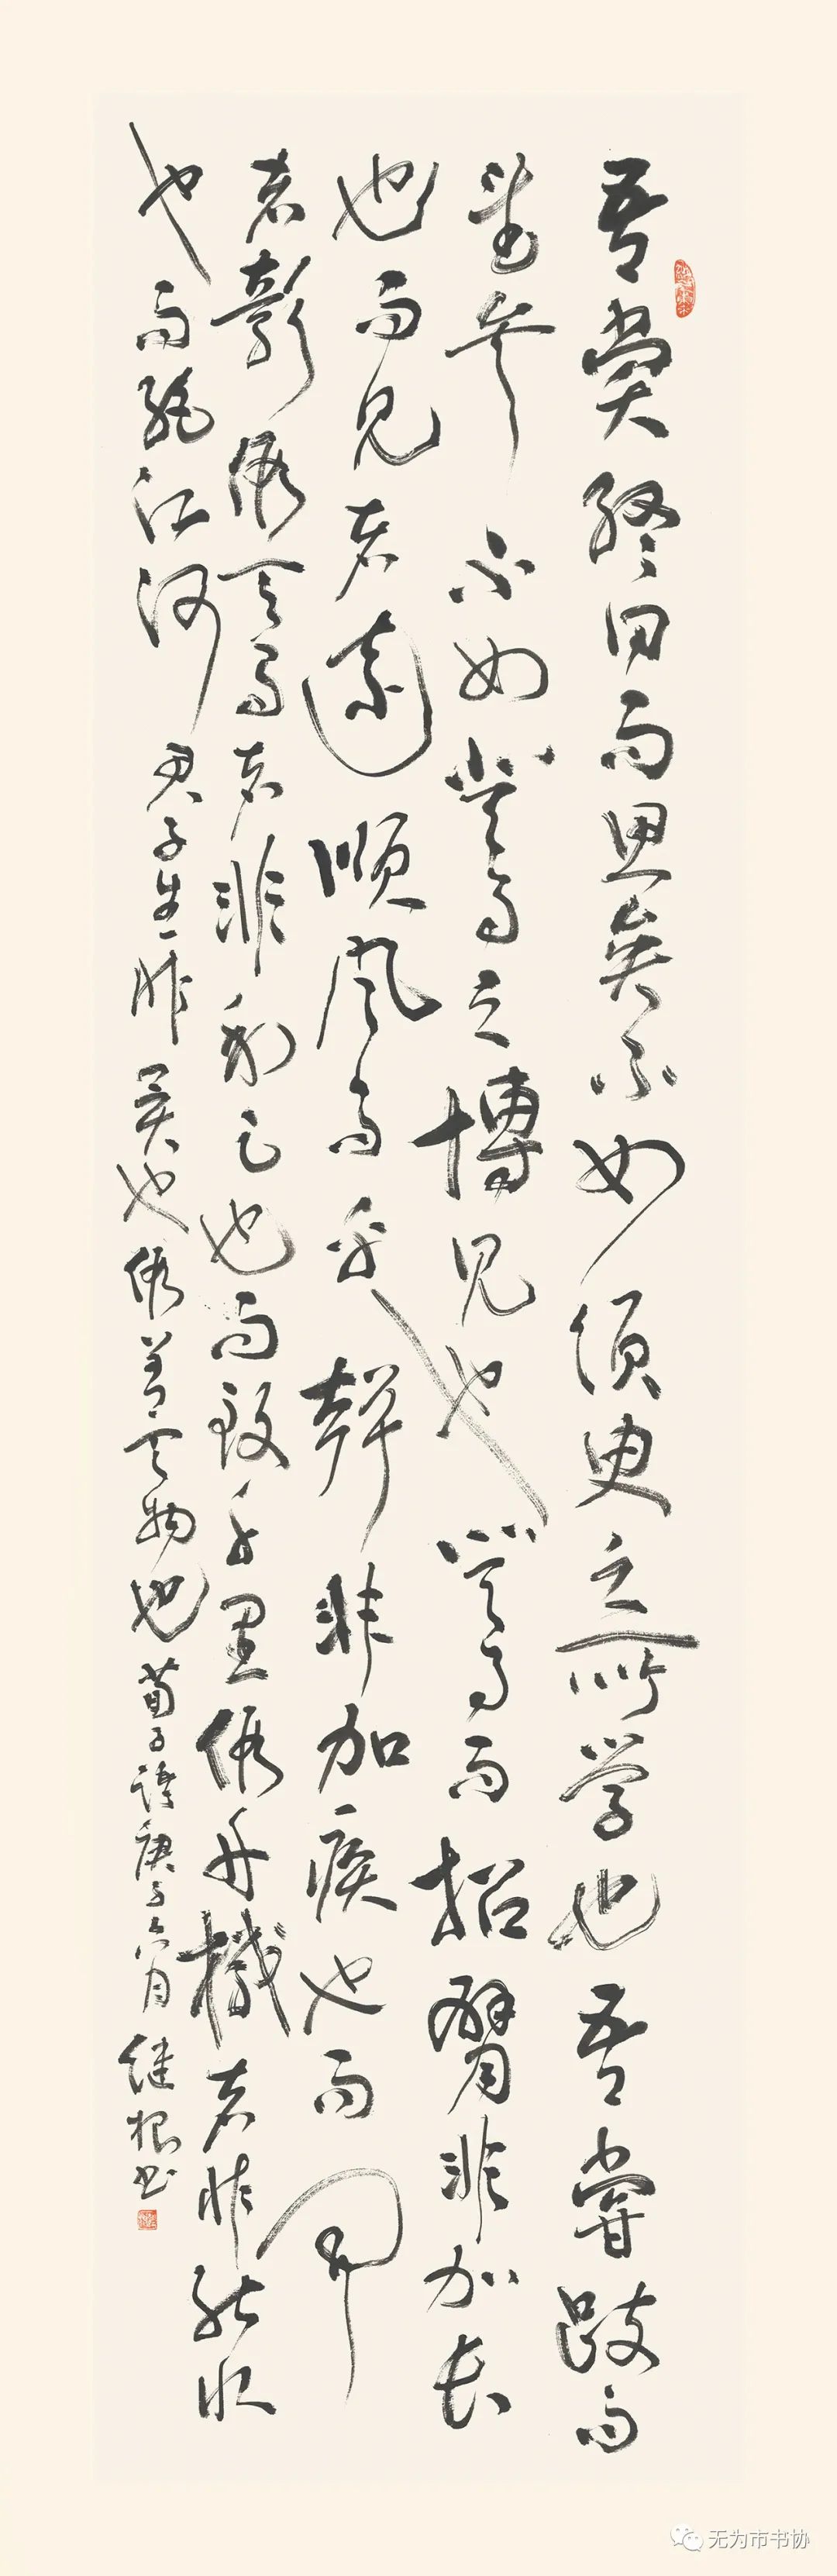 吾嘗終日而思矣不如須臾之所学也吾嘗跂而
望矣不如登高之博見也登高而招臂非加長
也而見者遠順風而呼聲非加疾也而聞
者彰假輿馬者非利足也而致千里假舟檝者非能水
也而絕江河君子生非異也假善於物也荀子語庚子六月继根书
无为市书协